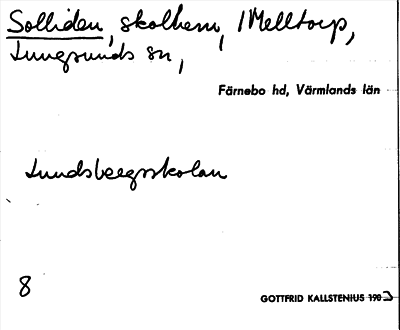 Solliden, skolhem, /Melltorp,
Lungsunds sn,
Färnebo hd, Värmlands län
Lundsbergsskolan
8
GOTTFRID KALLSTENIUS 1903